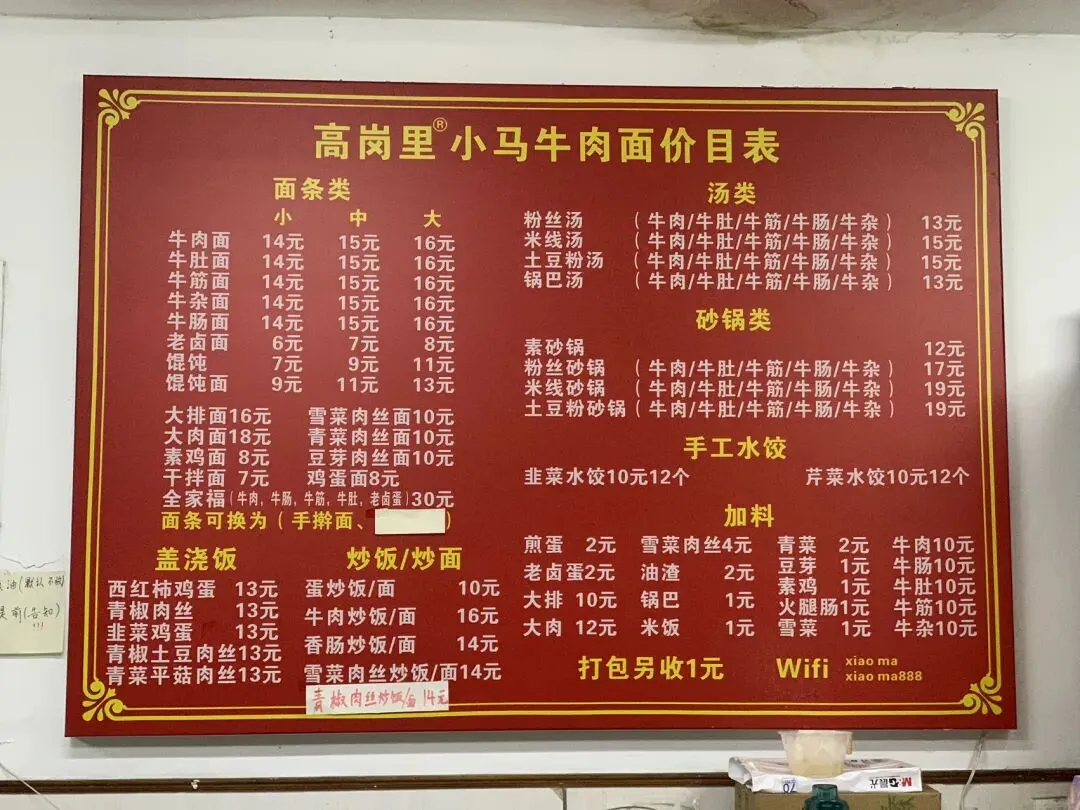 高岗里®小马牛肉面价目表
面条类
小 中 大
牛肉面 14元 15元 16元
牛肚面 14元 15元 16元
牛筋面 14元 15元 16元
牛杂面 14元 15元 16元
牛肠面 14元 15元 16元
老卤面 6元 7元 8元
馄饨 7元 9元 11元
馄饨面 9元 11元 13元
大排面16元 雪菜肉丝面10元
大肉面18元 青菜肉丝面10元
素鸡面 8元 豆芽肉丝面10元
干拌面 7元 鸡蛋面8元
全家福(牛肉，牛肠，牛筋，牛肚，老卤蛋)30元
面条可换为(手擀面、 )
盖浇饭
西红柿鸡蛋 13元
青椒肉丝 13元
韭菜鸡蛋 13元
青椒土豆肉丝13元
青菜平菇肉丝13元
炒饭/炒面
蛋炒饭/面 10元
牛肉炒饭/面 16元
香肠炒饭/面 14元
雪菜肉丝炒饭/面14元
青椒肉丝炒饭/面 14元
汤类
粉丝汤 (牛肉/牛肚/牛筋/牛肠/牛杂) 13元
米线汤 (牛肉/牛肚/牛筋/牛肠/牛杂) 15元
土豆粉汤 (牛肉/牛肚/牛筋/牛肠/牛杂) 15元
锅巴汤 (牛肉/牛肚/牛筋/牛肠/牛杂) 13元
砂锅类
素砂锅 12元
粉丝砂锅 (牛肉/牛肚/牛筋/牛肠/牛杂) 17元
米线砂锅 (牛肉/牛肚/牛筋/牛肠/牛杂) 19元
土豆粉砂锅 (牛肉/牛肚/牛筋/牛肠/牛杂) 19元
手工水饺
韭菜水饺10元12个 芹菜水饺10元12个
加料
煎蛋 2元 雪菜肉丝4元
老卤蛋2元 油渣 2元
大排 10元 锅巴 1元
大肉 12元 米饭 1元
青菜 2元 牛肉10元
豆芽 1元 牛肠10元
素鸡 1元 牛肚10元
火腿肠1元 牛筋10元
雪菜 1元 牛杂10元
打包另收1元 Wifi xiao ma
xiao ma888
油(默认不放)
前(告知)
!!!
M&G晨光
70